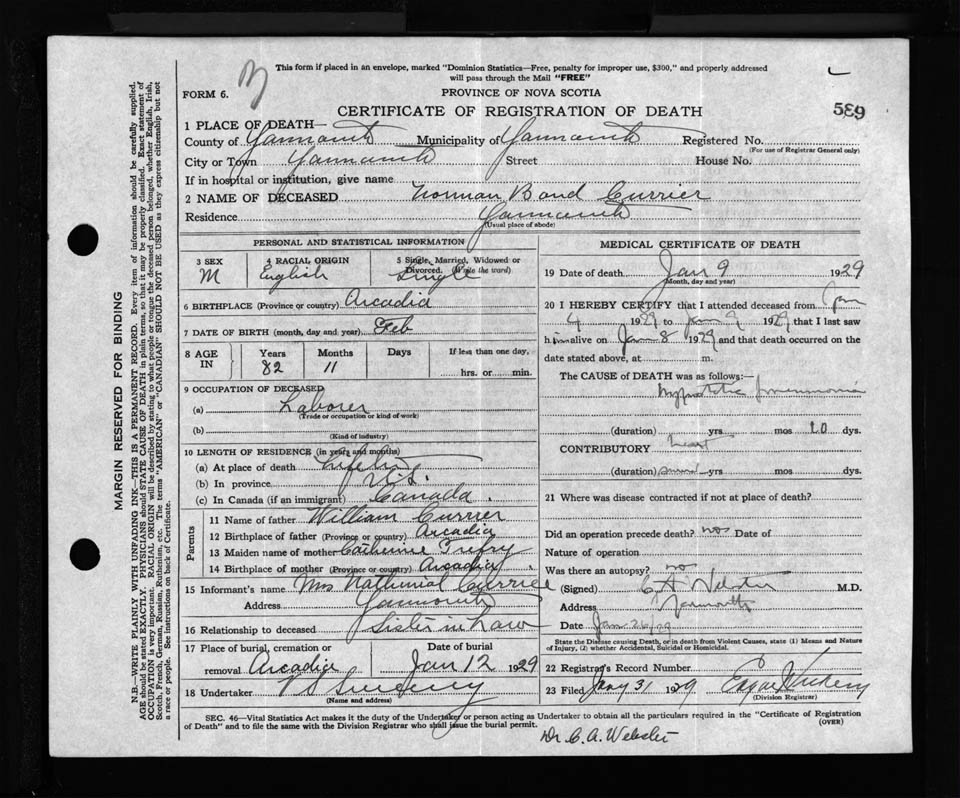 This form if placed in an envelope, marked "Dominion Statistics—Free, penalty for improper use, $300," and properly addressed
will pass through the Mail "FREE"
FORM 6.
PROVINCE OF NOVA SCOTIA
CERTIFICATE OF REGISTRATION OF DEATH
589
1 PLACE OF DEATH—
County of Yarmouth Municipality of Yarmouth Registered No.
(For use of Registrar General only)
City or Town Yarmouth Street House No.
If in hospital or institution, give name
2 NAME OF DECEASED Norman Bond Currier
Residence Yarmouth
(Usual place of abode)
PERSONAL AND STATISTICAL INFORMATION
3 SEX M
4 RACIAL ORIGIN English
5 Single, Married, Widowed or Divorced. (Write the word) Single
6 BIRTHPLACE (Province or country) Arcadia
7 DATE OF BIRTH (month, day and year) Feb
8 AGE IN Years Months Days If less than one day,
82 11 hrs. or min.
9 OCCUPATION OF DECEASED
(a) Laborer
(Trade or occupation or kind of work)
(b)
(Kind of industry)
10 LENGTH OF RESIDENCE (in years and months)
(a) At place of death life time
(b) In province N.S.
(c) In Canada (if an immigrant) Canada.
Parents
11 Name of father William Currier
12 Birthplace of father (Province or country) Arcadia
13 Maiden name of mother Catherine Trefry
14 Birthplace of mother (Province or country) Arcadia
15 Informant's name Mrs Nathaniel Currier
Address Yarmouth
16 Relationship to deceased Sister in Law
17 Place of burial, cremation or removal Arcadia Date of burial Jan 12 1929
18 Undertaker V S Sweeny
(Name and address)
MEDICAL CERTIFICATE OF DEATH
19 Date of death Jan 9 1929
(Month, day and year)
20 I HEREBY CERTIFY that I attended deceased from Jan
4 1929 to Jan 9 1929 that I last saw
him alive on Jan 8 1929 and that death occurred on the
date stated above, at m.
The CAUSE OF DEATH was as follows:—
Hypostatic pneumonia
(duration) yrs mos 10 dys.
CONTRIBUTORY heart
(duration) yrs mos dys.
21 Where was disease contracted if not at place of death?
Did an operation precede death? no Date of
Nature of operation
Was there an autopsy? no
(Signed) C A Webster M.D.
Address Yarmouth
Date Jan 26/29
State the Disease causing Death, or in death from Violent Causes, state (1) Means and Nature
of Injury, (2) whether Accidental, Suicidal or Homicidal.
22 Registrar's Record Number
23 Filed Jany 31 1929
(Division Registrar)
SEC. 46—Vital Statistics Act makes it the duty of the Undertaker or person acting as Undertaker to obtain all the particulars required in the "Certificate of Registration
of Death" and to file the same with the Division Registrar who shall issue the burial permit. (OVER)
Dr. C. A. Webster
MARGIN RESERVED FOR BINDING
N.B.—WRITE PLAINLY WITH UNFADING INK—THIS IS A PERMANENT RECORD. Every item of information should be carefully supplied.
AGE should be stated EXACTLY. PHYSICIANS should STATE CAUSE OF DEATH in plain terms, so that it may be properly classified. Exact statement of
OCCUPATION is very important. RACIAL ORIGIN will be described by stating to what people or tongue the deceased person belonged, whether English, Irish,
Scotch, French, German, Russian, Ruthenian, etc. The terms "AMERICAN" or "CANADIAN" SHOULD NOT BE USED as they express citizenship but not
a race or people. See instructions on back of Certificate.